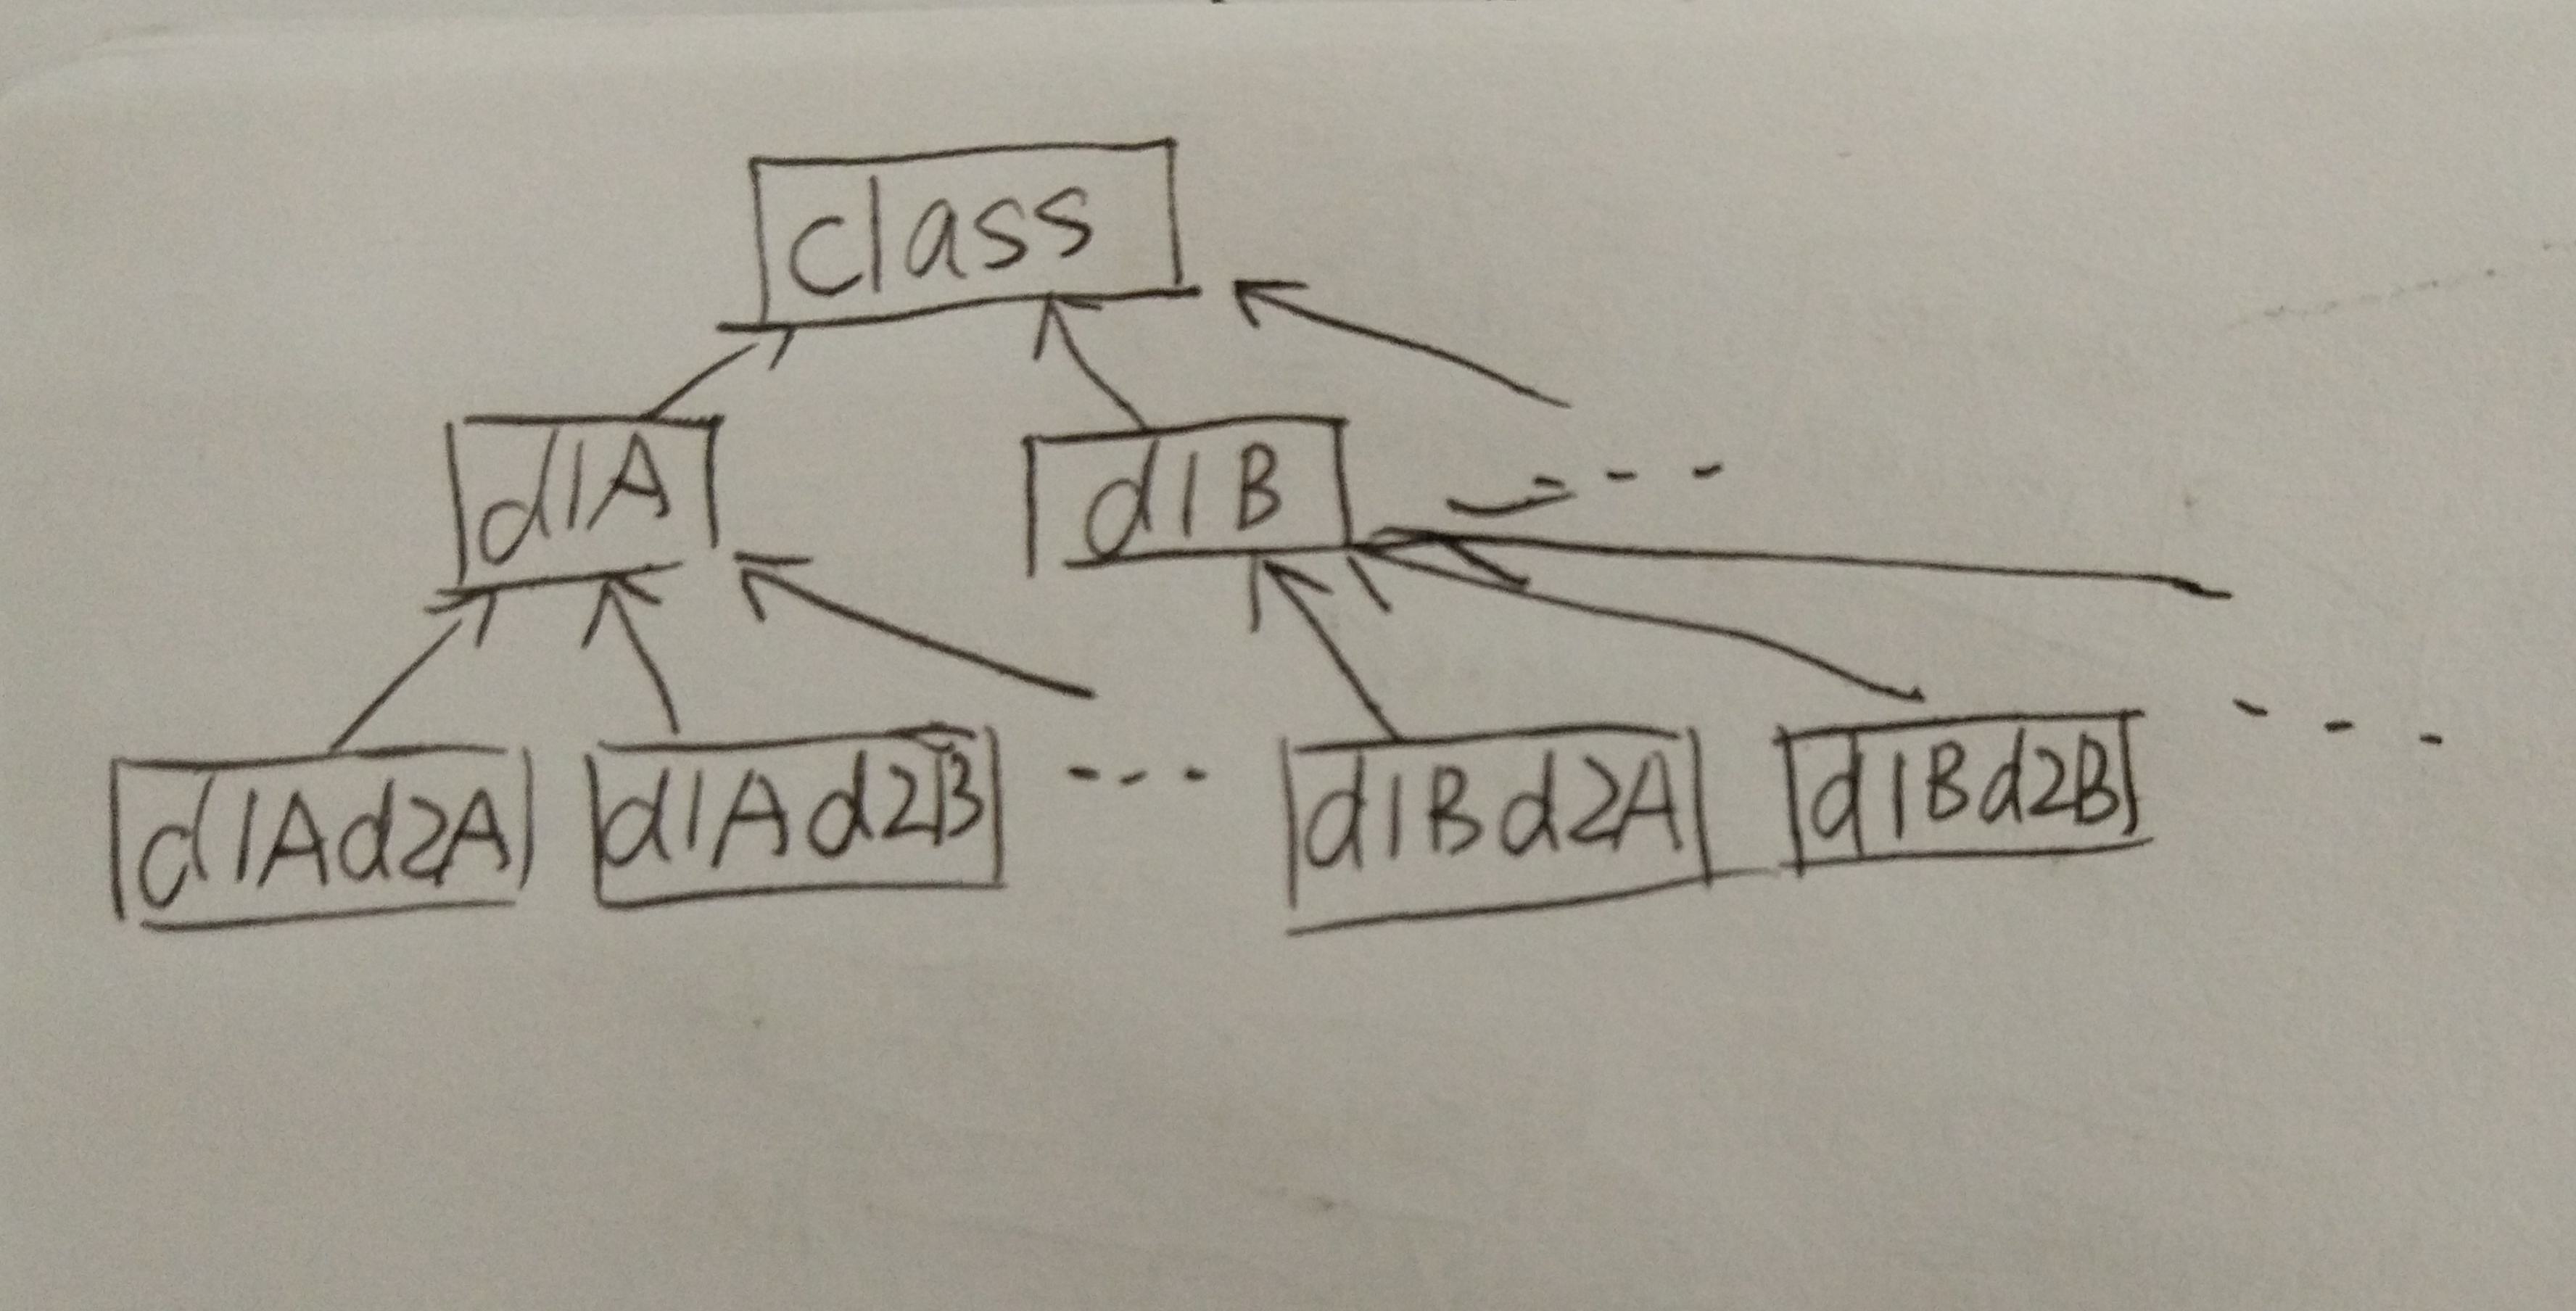 class
d1A d1B ---
d1Ad2A d1Ad2B --- d1Bd2A d1Bd2B ---